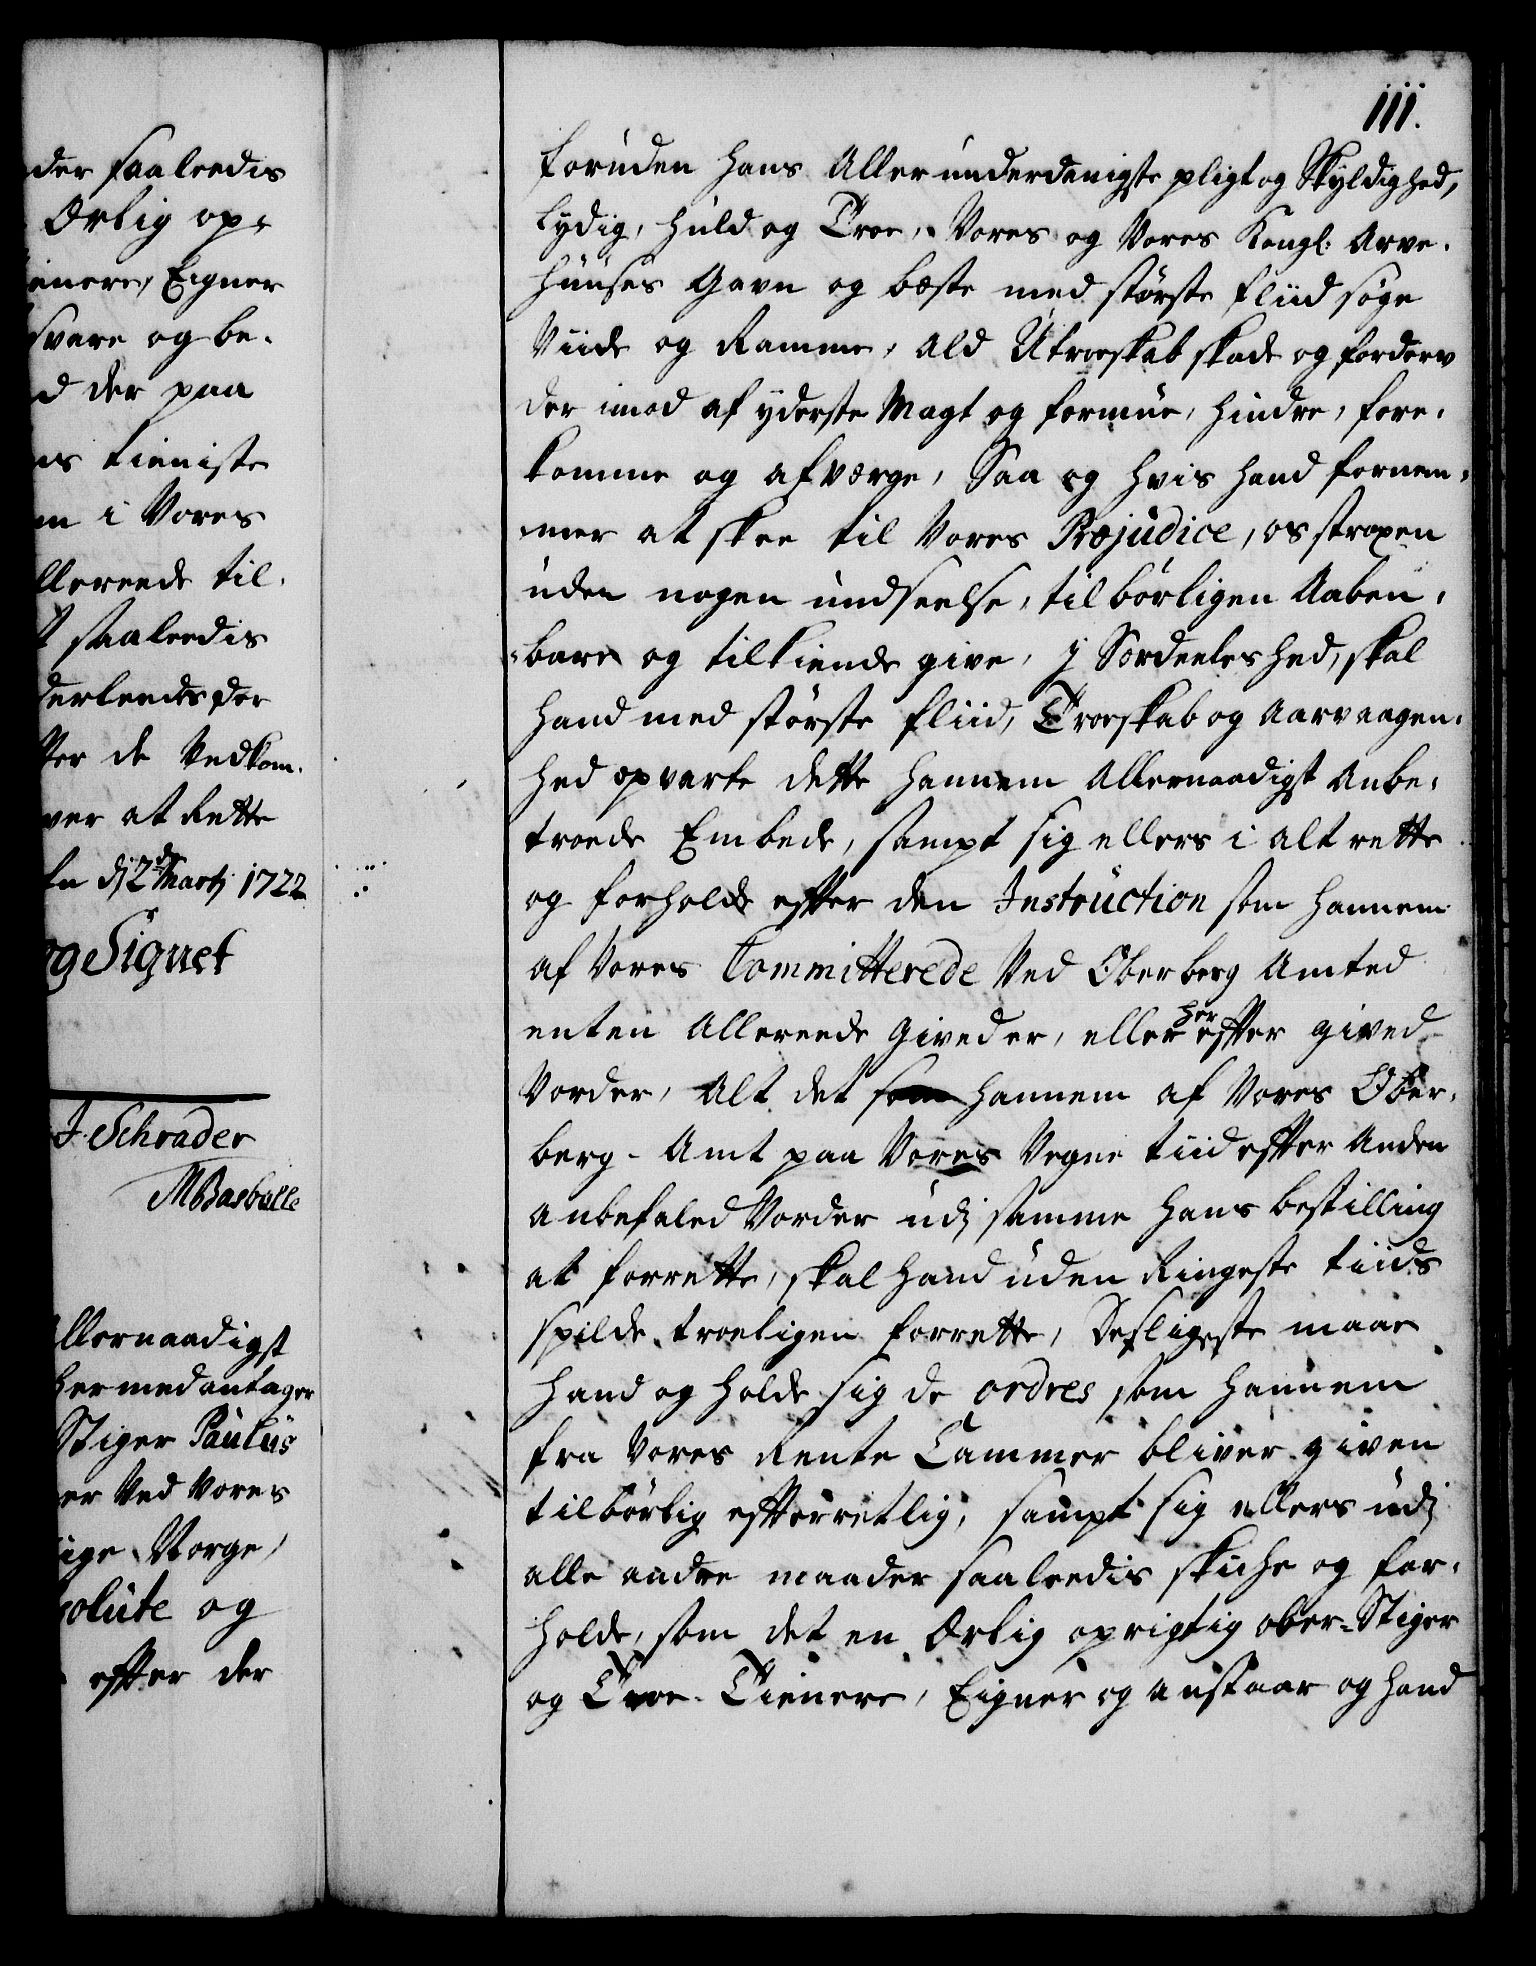 der saaleedis
Ærlig op-
ienere, Eigner
svare og be-
d der paa
ns tieniste
m i Vores
llereede til-
saaleedis
derleedes der
ter de Vedkom-
ver at Rette
fn dj 2de Martj 1722
og Signet
J. Schrader
MBasballe
llernaadigst
her med antager
Stiger Paulus
er Ved Vores
ige Norge,
solute og
efter der
111.
foruden hans Allerunderdanigste pligt og Skyldighed,
Lydig, huld og Troe, Vores og Vores Kongl: Arve-
Huuses Gavn og beste med största fliid söge
Viide og Ramme, Ald Utroeskab skade og forderv
der imod af yderste Magt og formue, hindre, fore-
komme og afværge, Saa og hvis hand fornem-
mer at skee til Vores Præjudice, os straxen
uden nogen undseelse, tilbörligen Aaben-
bare og tilkiende give, J Særdeeleshed, skal
hand med störste fliid, Troeskab og Aarvaagen-
hed opvarte dette hannem Allernaadigst Anbe-
troede Embede, sampt sig ellers i alt rette
og forholde efter den Instruction som hannem
af Vores Committerede Ved Oberberg Amted
enten Allereede Gived er, eller her efter gived
Vorder, Alt det som hannem af Vores Ober-
berg-Amt paa Vores Vegne tiid efter Anden
anbefaled Vorder udj samme hans bestilling
at forrette, skal hand uden Ringeste tiids
spilde troeligen forrette, Desligeste maae
hand og holde sig de ordres som hannem
fra Vores Rente Cammer bliver given
tilbörlig efterretlig, sampt sig ellers udj
alle andre maader saaleedis skicke og for-
holde, som det en Ærlig oprigtig ober-Stiger
og Troe-Tienere, Eigner og anstaar og hand